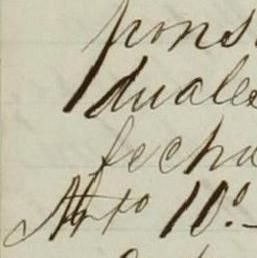 pons
duales
fecha
Arto 10º.-